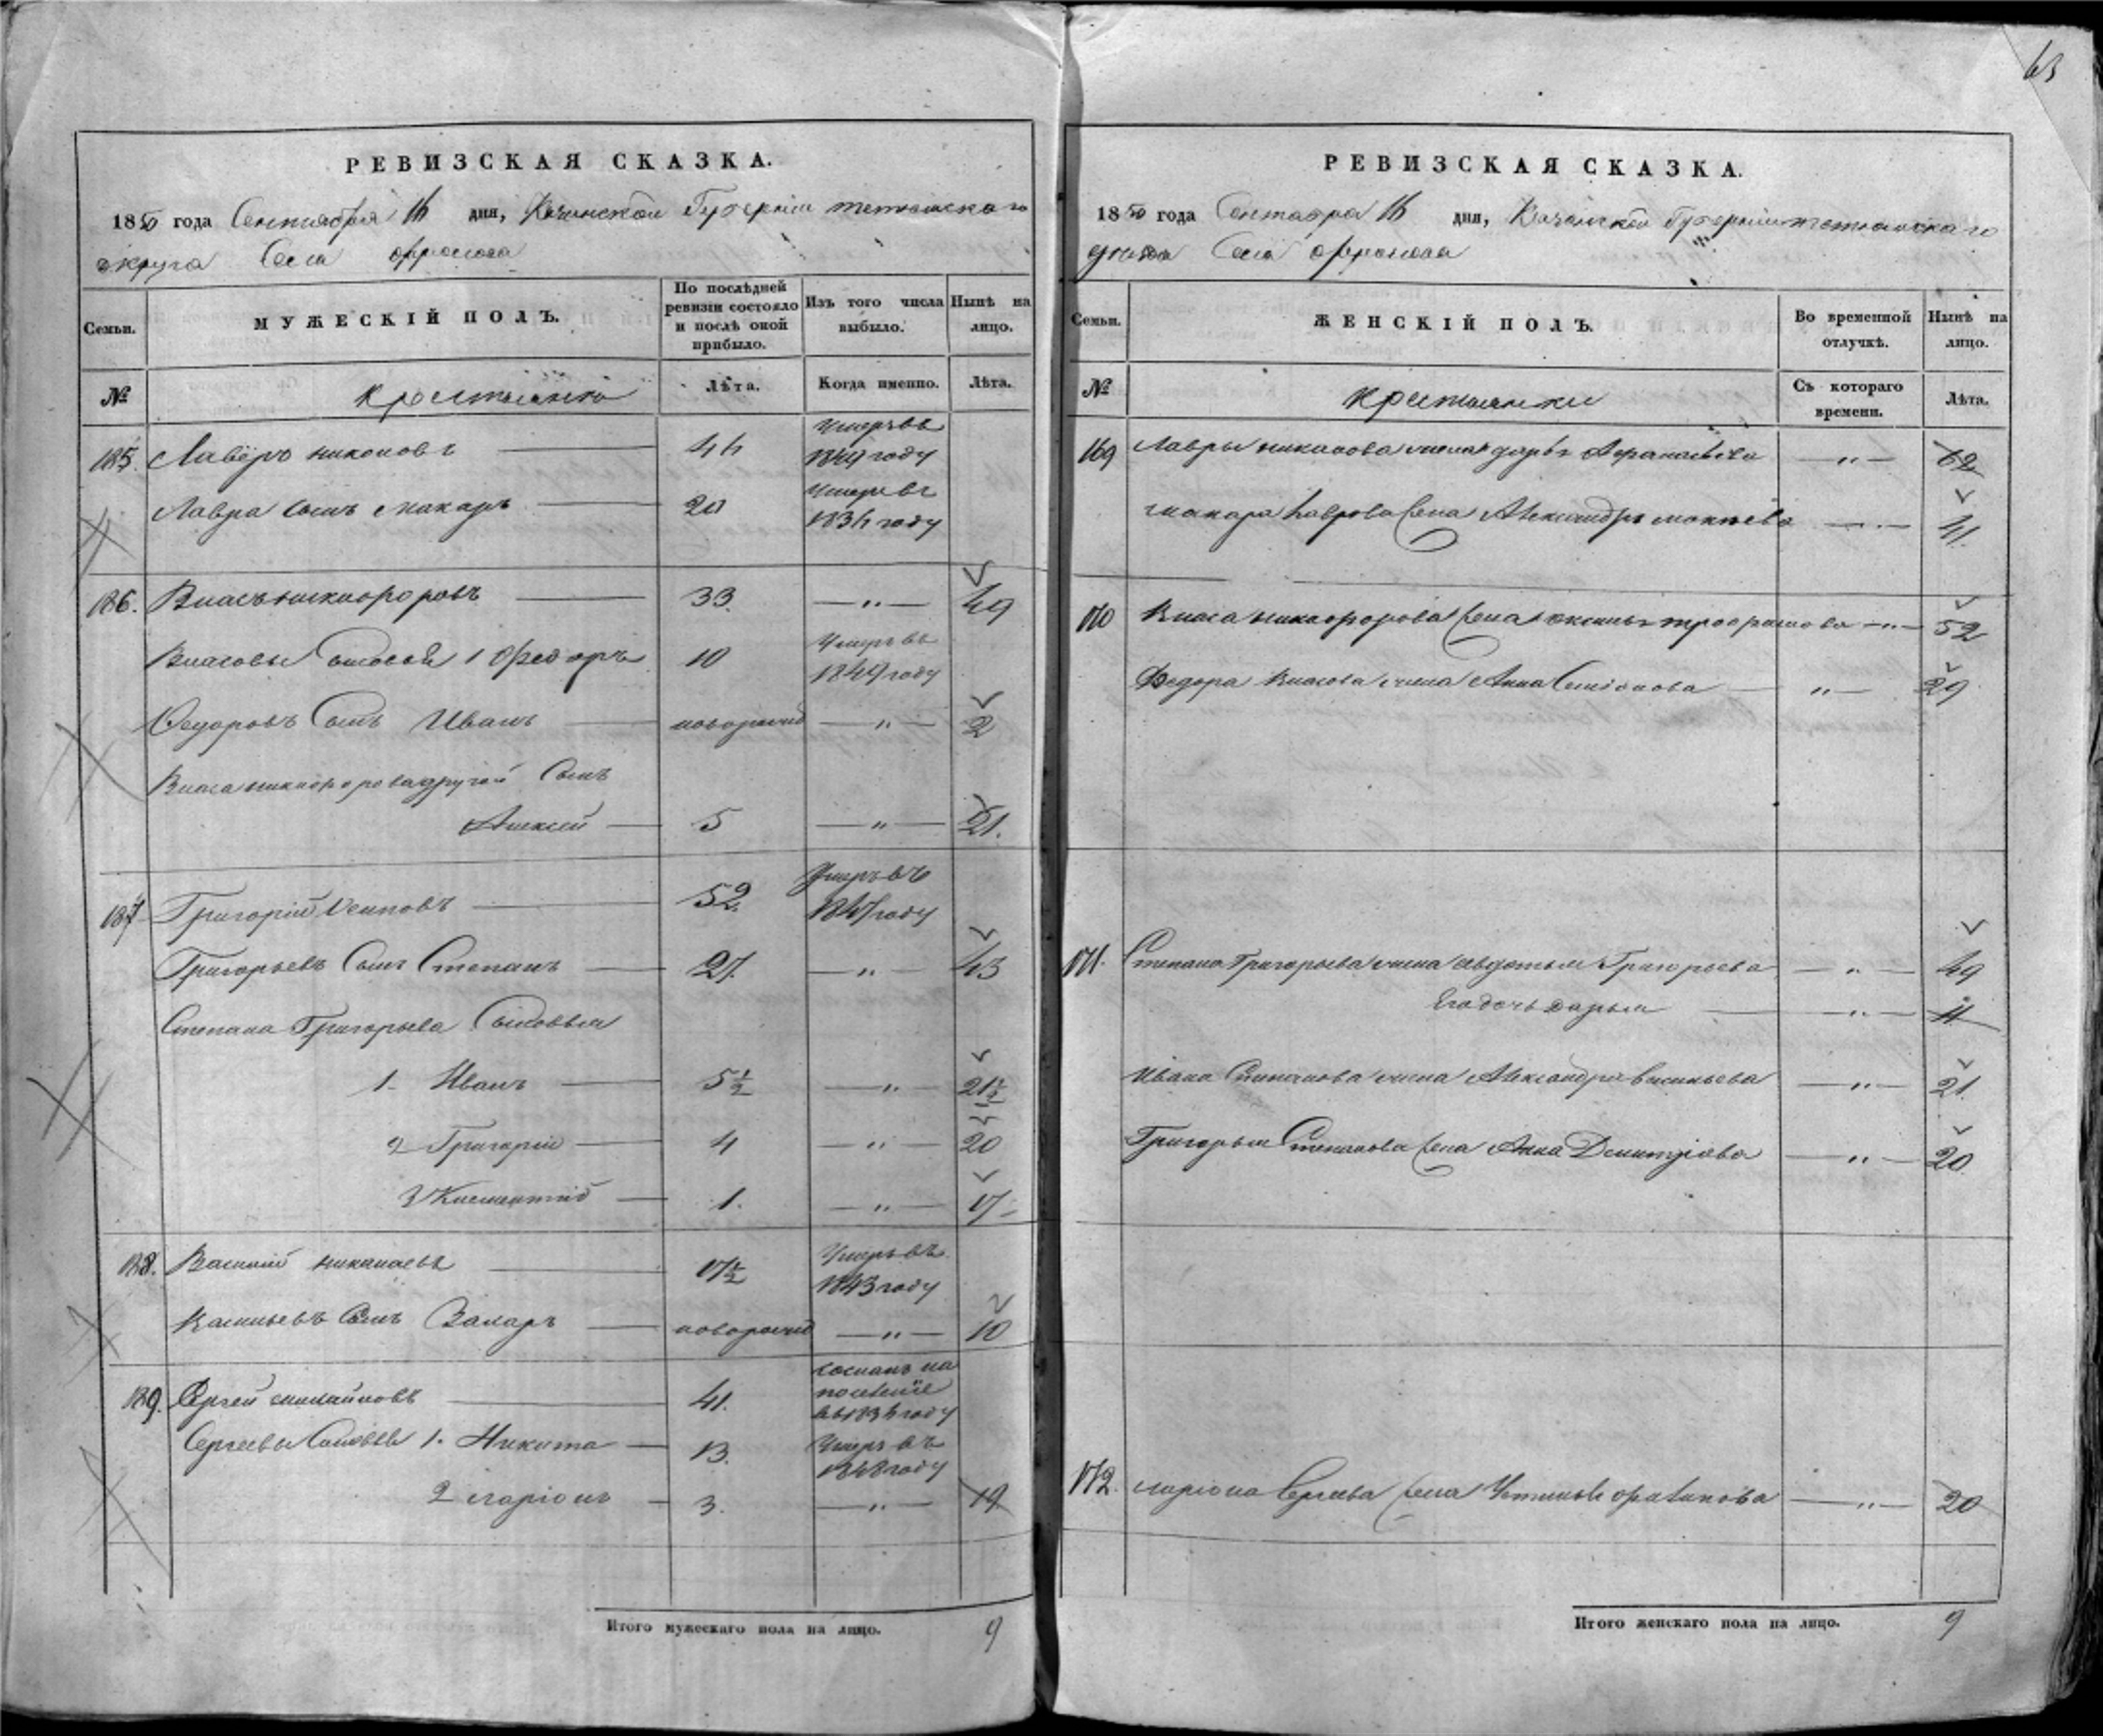 63
РЕВИЗСКАЯ СКАЗКА.
1850 года Сентября 16 дня, Казанской Губерніи тетюшскаго
округа Села Фролова
Семьи.
МУЖЕСКІЙ ПОЛЪ.
По послѣдней ревизіи состояло и послѣ оной прибыло.
Изъ того числа выбыло.
Нынѣ на лицо.
№
крестьяне
Лѣта.
Когда именно.
Лѣта.
185. Лавёръ никоновъ 46 Умеръ въ 1849 году
Лавра сынъ макаръ 20 Умеръ въ 1836 году
186. Власъ никифоровъ 33. — " — 49
Власовы Сыновья 1 Федоръ 10 Умеръ въ 1849 году
Федоровъ Сынъ Иванъ новорожд — " — 2
Власа никифорова другой Сынъ
Алексей 5 — " — 21.
187 Григорій Осиповъ 52. Умеръ въ 1847 году
Григорьевъ Сынъ Степанъ 27. — " — 43
Степана Григорьева Сыновья
1. Иванъ 5½ — " — 21½
2 Григорій 4 — " — 20
3 Климентій 1. — " — 17
188. Василій николаевъ 17½ Умеръ въ 1843 году
Васильевъ Сынъ Захаръ новорожд — " — 10
189. Сергей михайловъ 41. сосланъ на поселеніе въ 1836 году
Сергеевы Сыновья 1. Никита 13. Умеръ въ 1848 году
2 ларіонъ 3. — " — 19
Итого мужескаго пола на лицо. 9
РЕВИЗСКАЯ СКАЗКА.
1850 года Сентября 16 дня, Казанской Губерніи тетюшскаго
уезда Села Фролова
Семьи.
ЖЕНСКІЙ ПОЛЪ.
Во временной отлучкѣ.
Нынѣ на лицо.
№
крестьянки
Съ котораго времени.
Лѣта.
169 Лавры никонова жена дарья Афанасьева — " — 62
макара Лаврова жена Александра мокеева — " — 41.
170 Власа никифорова жена аксинья трофимова — " — 52
Федора Власова жена Анна Семионова — " — 29
171. Степана Григорьева жена авдотья Григорьева — " — 49
Его дочь Дарья — " — 11
Ивана Степанова жена Александра васильева — " — 21.
Григорья Степанова жена Анна Димитріева — " — 20
172. ларіона Сергеева жена Устинья — " — 20
Итого женскаго пола на лицо. 9